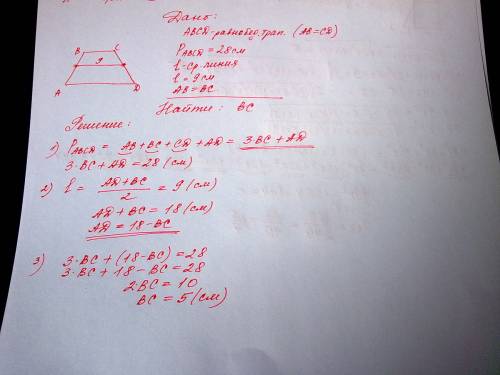 Дано:
ABCD-равнобед. трап. (AB=CD)
P ABCD = 28см
l-ср. линия
l = 9см
AB=BC
Найти: BC
B C
9
A D
Решение:
1) P ABCD = AB+BC+CD+AD= 3BC+AD
3·BC+AD=28(см)
2) l = (AD+BC)/2 = 9(см)
AD+BC=18(см)
AD=18-BC
3) 3·BC+(18-BC)=28
3·BC+18-BC=28
2BC=10
BC=5(см)